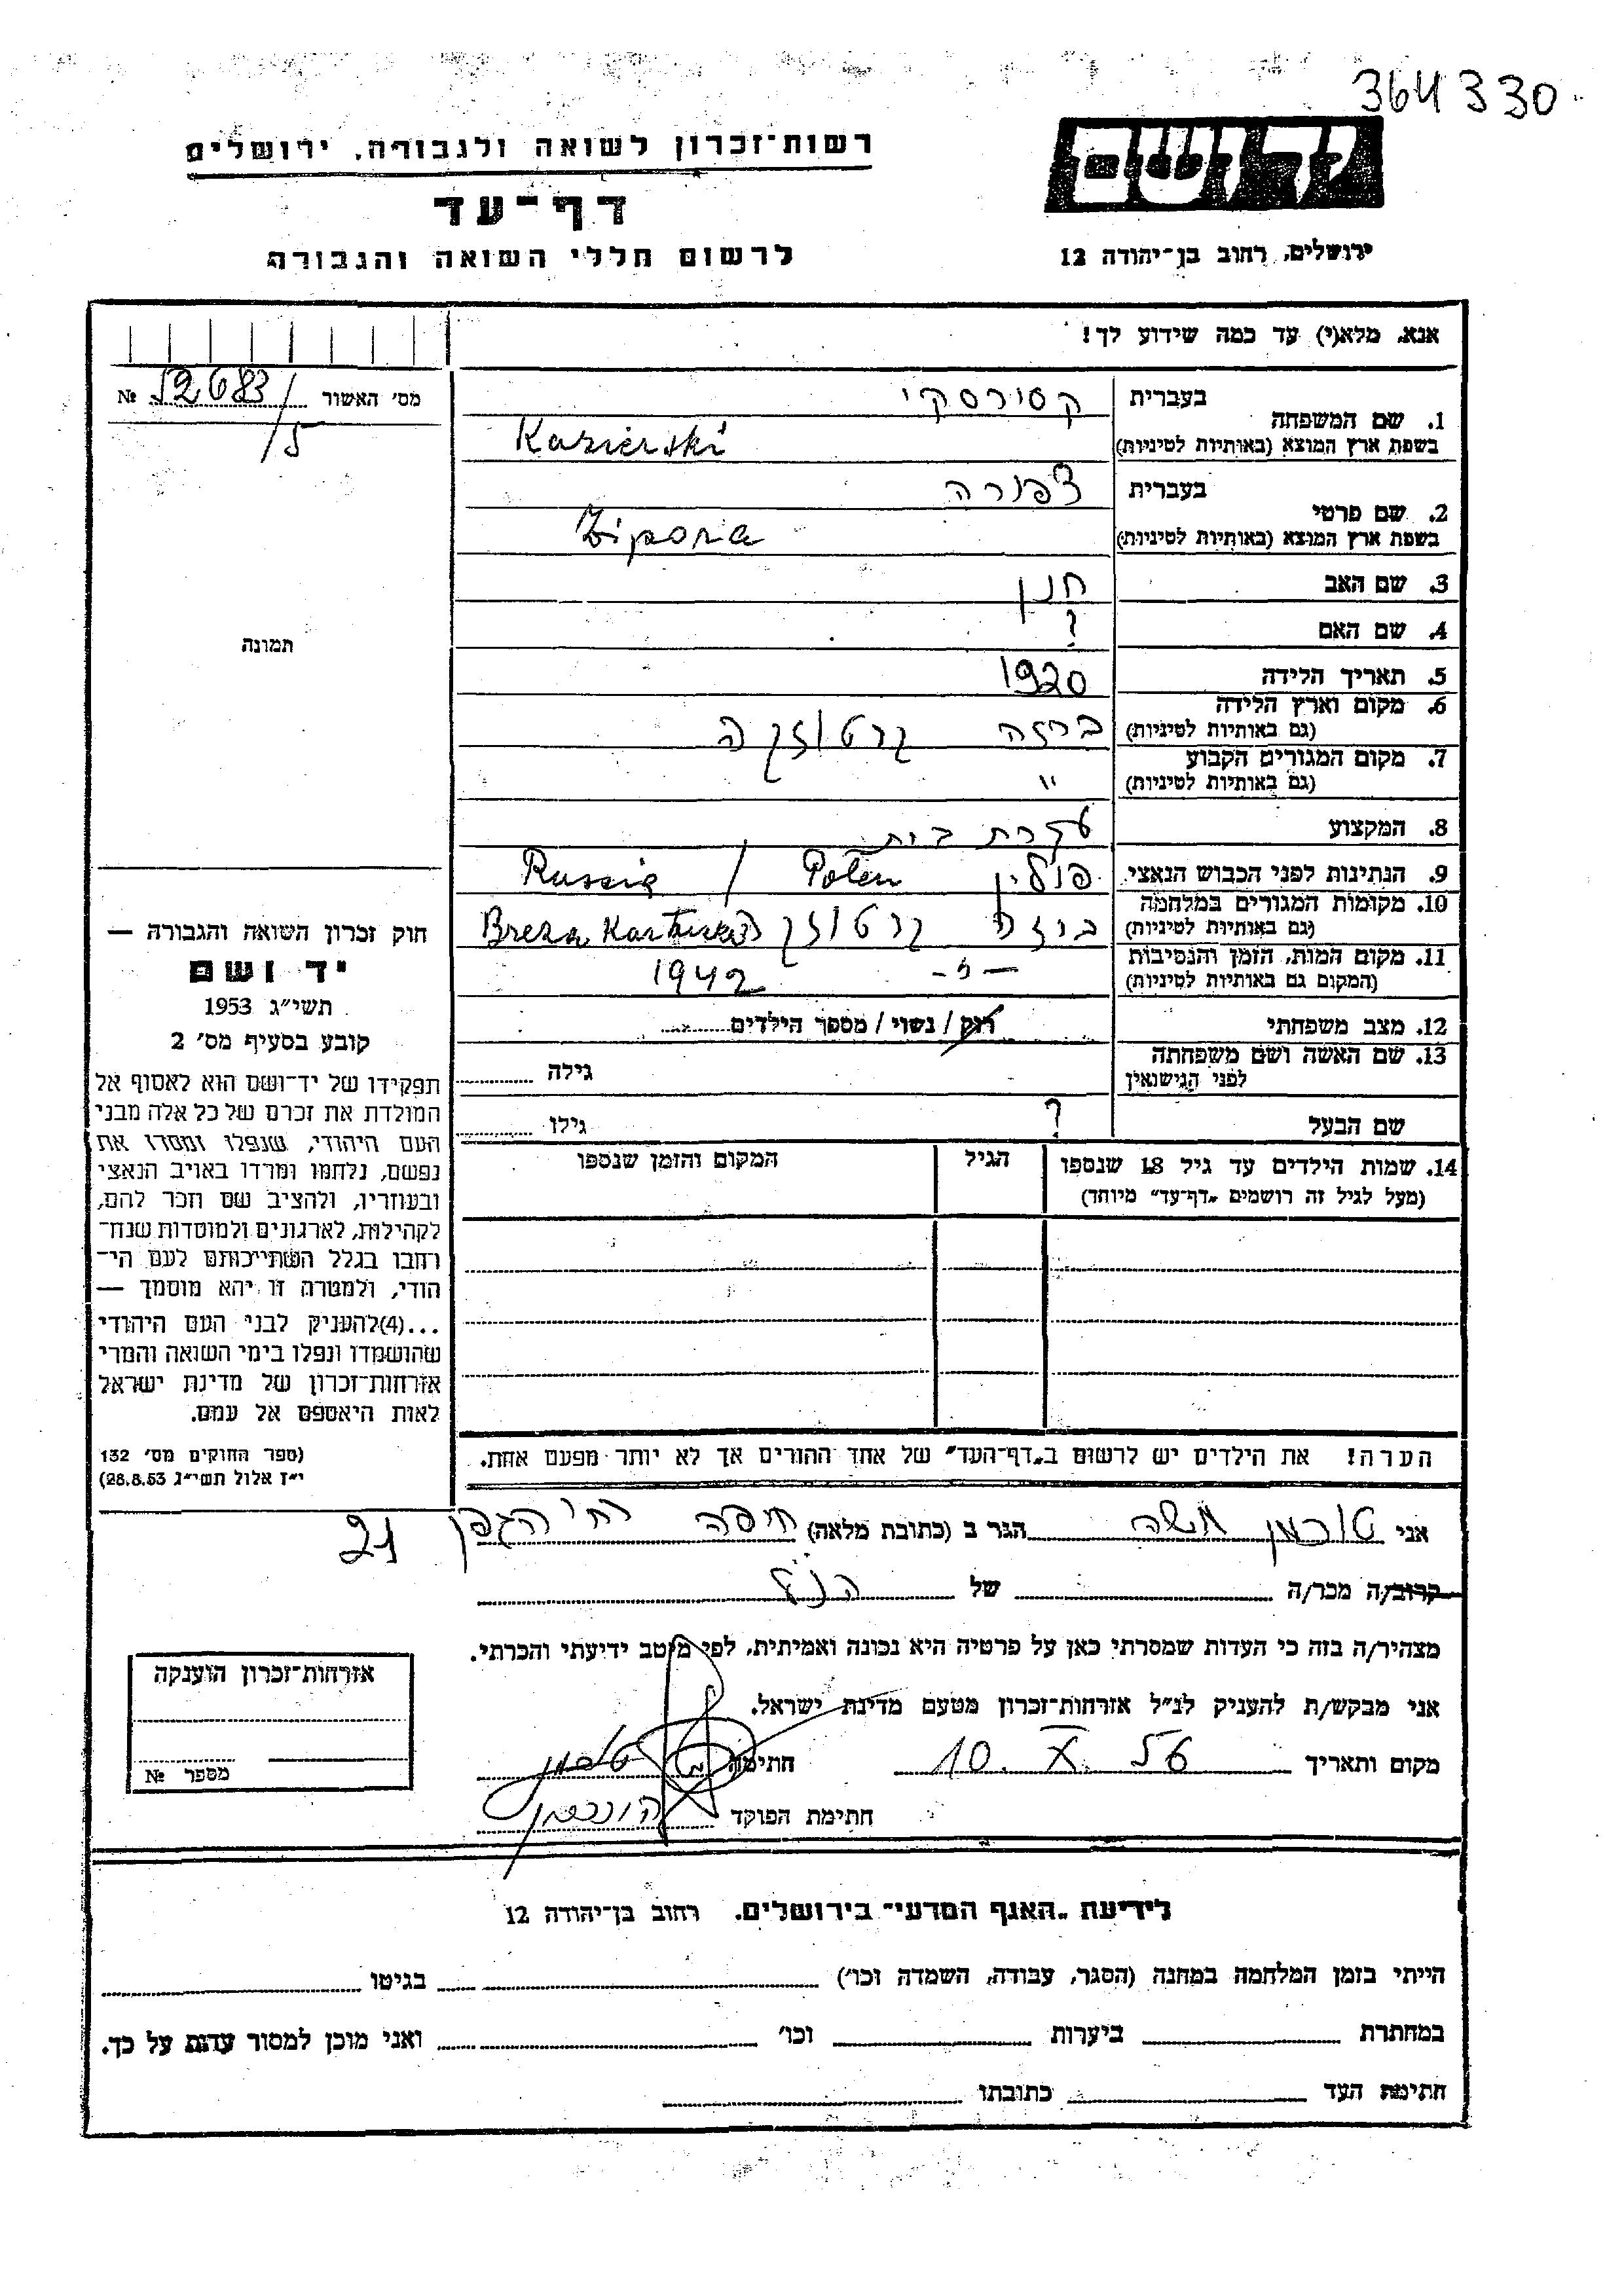 364330
יד ושם
רשות־זכרון לשואה ולגבורה, ירושלים
דף־עד
ירושלים, רחוב בן־יהודה 12
לרשום חללי השואה והגבורה
אנא, מלא(י) עד כמה שידוע לך!
מס' האשור № 52683/5
1. שם המשפחה
בעברית קסירסקי
בשפת ארץ המוצא (באותיות לטיניות) Kasierski
2. שם פרטי
בעברית צפורה
בשפת ארץ המוצא (באותיות לטיניות) Zipora
3. שם האב חנן
4. שם האם ?
תמונה
5. תאריך הלידה 1920
6. מקום וארץ הלידה
(גם באותיות לטיניות) ברזה קרטוזקה
7. מקום המגורים הקבוע
(גם באותיות לטיניות) "
8. המקצוע עקרת בית
9. הנתינות לפני הכבוש הנאצי פולין Polen / Russia
10. מקומות המגורים במלחמה
(גם באותיות לטיניות) ברזה קרטוזקה Breza
11. מקום המות, הזמן והנסיבות
(המקום גם באותיות לטיניות) 1942
12. מצב משפחתי רוק / נשוי / מספר הילדים
13. שם האשה ושם משפחתה
לפני הנישואין גילה
שם הבעל ? גילו
14. שמות הילדים עד גיל 18 שנספו הגיל המקום והזמן שנספו
(מעל לגיל זה רושמים „דף־עד" מיוחד)
חוק זכרון השואה והגבורה —
יד ושם
תשי"ג 1953
קובע בסעיף מס' 2
תפקידו של יד־ושם הוא לאסוף אל
המולדת את זכרם של כל אלה מבני
העם היהודי, שנפלו ומסרו את
נפשם, נלחמו ומרדו באויב הנאצי
ובעוזריו, ולהציב שם וזכר להם,
לקהילות, לארגונים ולמוסדות שנח־
רחבו בגלל השתייכותם לעם הי־
הודי, ולמטרה זו יהא מוסמך —
...(4)להעניק לבני העם היהודי
שהושמדו ונפלו בימי השואה והמרי
אזרחות־זכרון של מדינת ישראל
לאות היאספם אל עמם.
(ספר החוקים מס' 132
י"ז אלול תשי"ג 28.8.53)
הערה! את הילדים יש לרשום ב„דף־העד" של אחד ההורים אך לא יותר מפעם אחת.
אני טוכמן משה הגר ב (כתובת מלאה) חיפה רח' הגפן 21
קרוב/ה מכר/ה של הנ"ל
מצהיר/ה בזה כי העדות שמסרתי כאן על פרטיה היא נכונה ואמיתית, לפי מיטב ידיעתי והכרתי.
אני מבקש/ת להעניק לנ"ל אזרחות־זכרון מטעם מדינת ישראל.
מקום ותאריך 10. X. 56 חתימה טוכמן
חתימת הפוקד
אזרחות־זכרון הוענקה
מספר №
לידיעת „האגף המדעי" בירושלים, רחוב בן־יהודה 12
הייתי בזמן המלחמה במחנה (הסגר, עבודה, השמדה וכו') בגיטו
במחתרת ביערות וכו' ואני מוכן למסור עדות על כך.
חתימת העד כתובתו